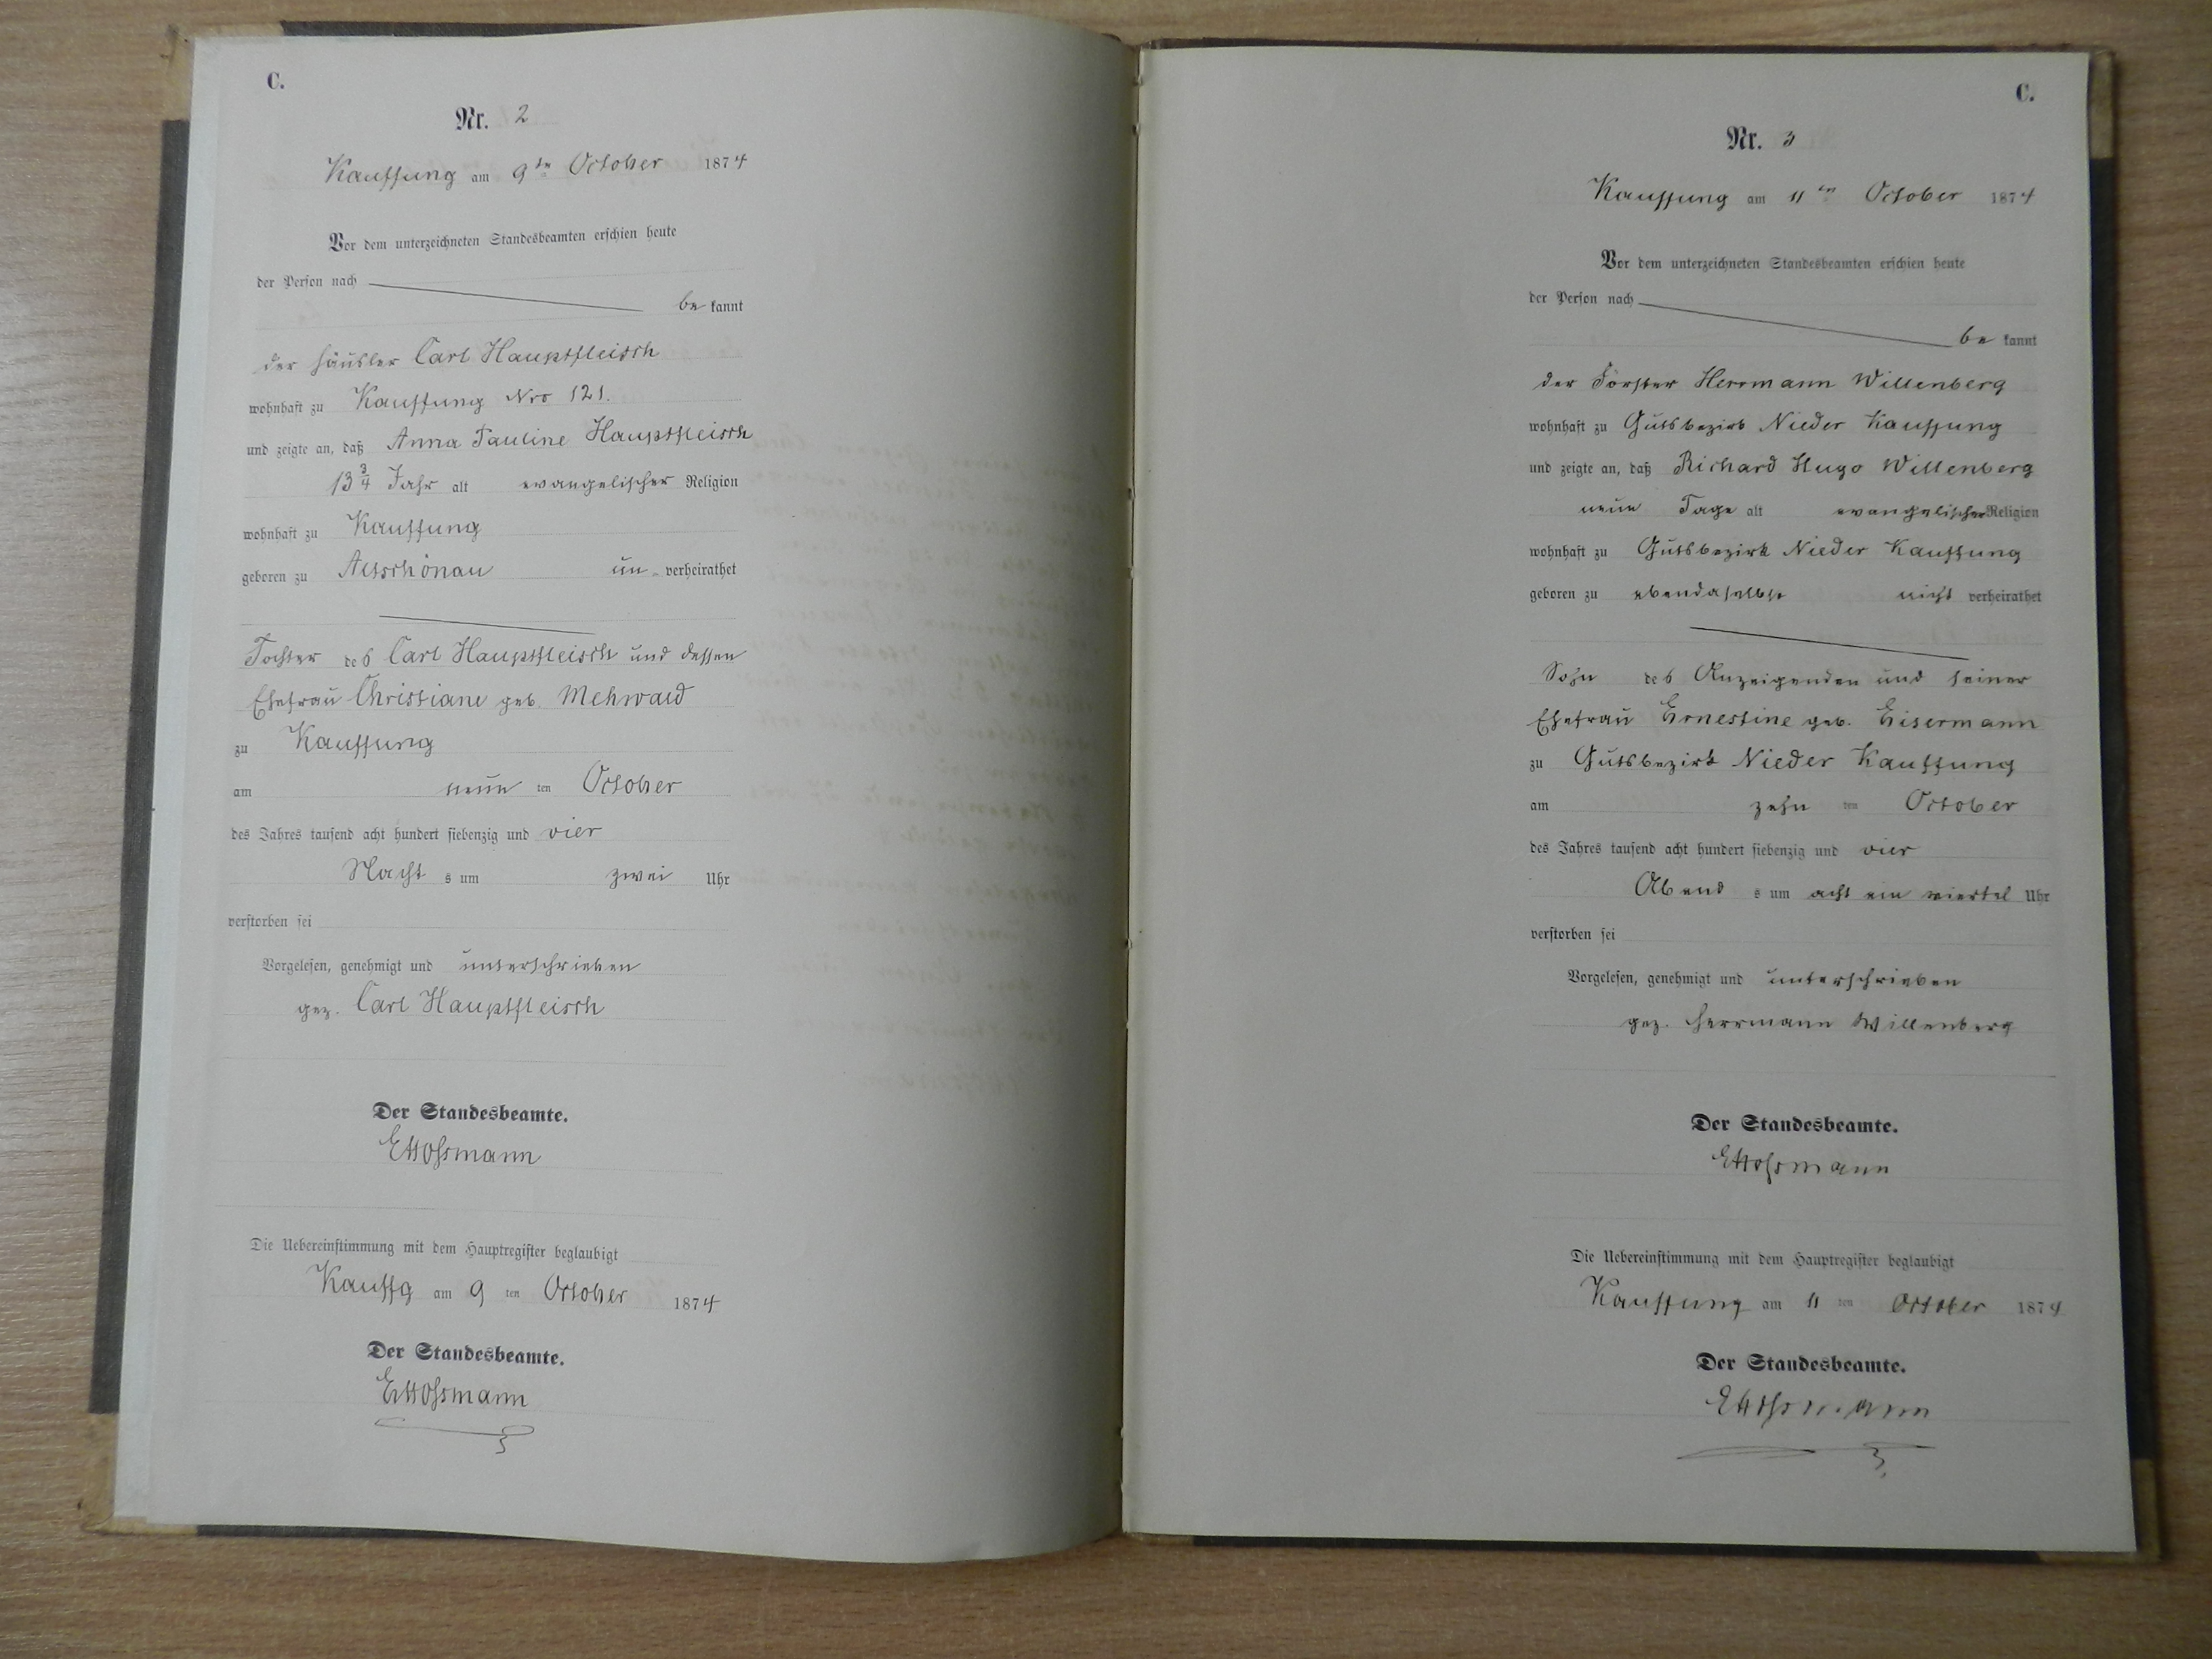 C.
Nr. 2
Kauffung am 9ten October 1874
Vor dem unterzeichneten Standesbeamten erschien heute
der Person nach
be kannt
der Häusler Carl Hauptfleisch
wohnhaft zu Kauffung Nro 121.
und zeigte an, daß Anna Pauline Hauptfleisch
13 3/4 Jahr alt evangelischer Religion
wohnhaft zu Kauffung
geboren zu Altschönau un verheirathet
Tochter des Carl Hauptfleisch und dessen
Ehefrau Christiane geb. Mehwald
zu Kauffung
am neun ten October
des Jahres tausend acht hundert siebenzig und vier
Nacht s um zwei Uhr
verstorben sei
Vorgelesen, genehmigt und unterschrieben
gez. Carl Hauptfleisch
Der Standesbeamte.
Die Uebereinstimmung mit dem Hauptregister beglaubigt
Kauffg am 9 ten October 1874
Der Standesbeamte.
C.
Nr. 3
Kauffung am 11ten October 1874
Vor dem unterzeichneten Standesbeamten erschien heute
der Person nach
be kannt
der Förster Herrmann Willenberg
wohnhaft zu Gutsbezirk Nieder Kauffung
und zeigte an, daß Richard Hugo Willenberg
neun Tage alt evangelischer Religion
wohnhaft zu Gutsbezirk Nieder Kauffung
geboren zu ebendaselbst nicht verheirathet
Sohn des Anzeigenden und seiner
Ehefrau Ernestine geb. Eisermann
zu Gutsbezirk Nieder Kauffung
am zehn ten October
des Jahres tausend acht hundert siebenzig und vier
Abend s um acht ein viertel Uhr
verstorben sei
Vorgelesen, genehmigt und unterschrieben
gez. Herrmann Willenberg
Der Standesbeamte.
Die Uebereinstimmung mit dem Hauptregister beglaubigt
Kauffung am 11 ten October 1874
Der Standesbeamte.